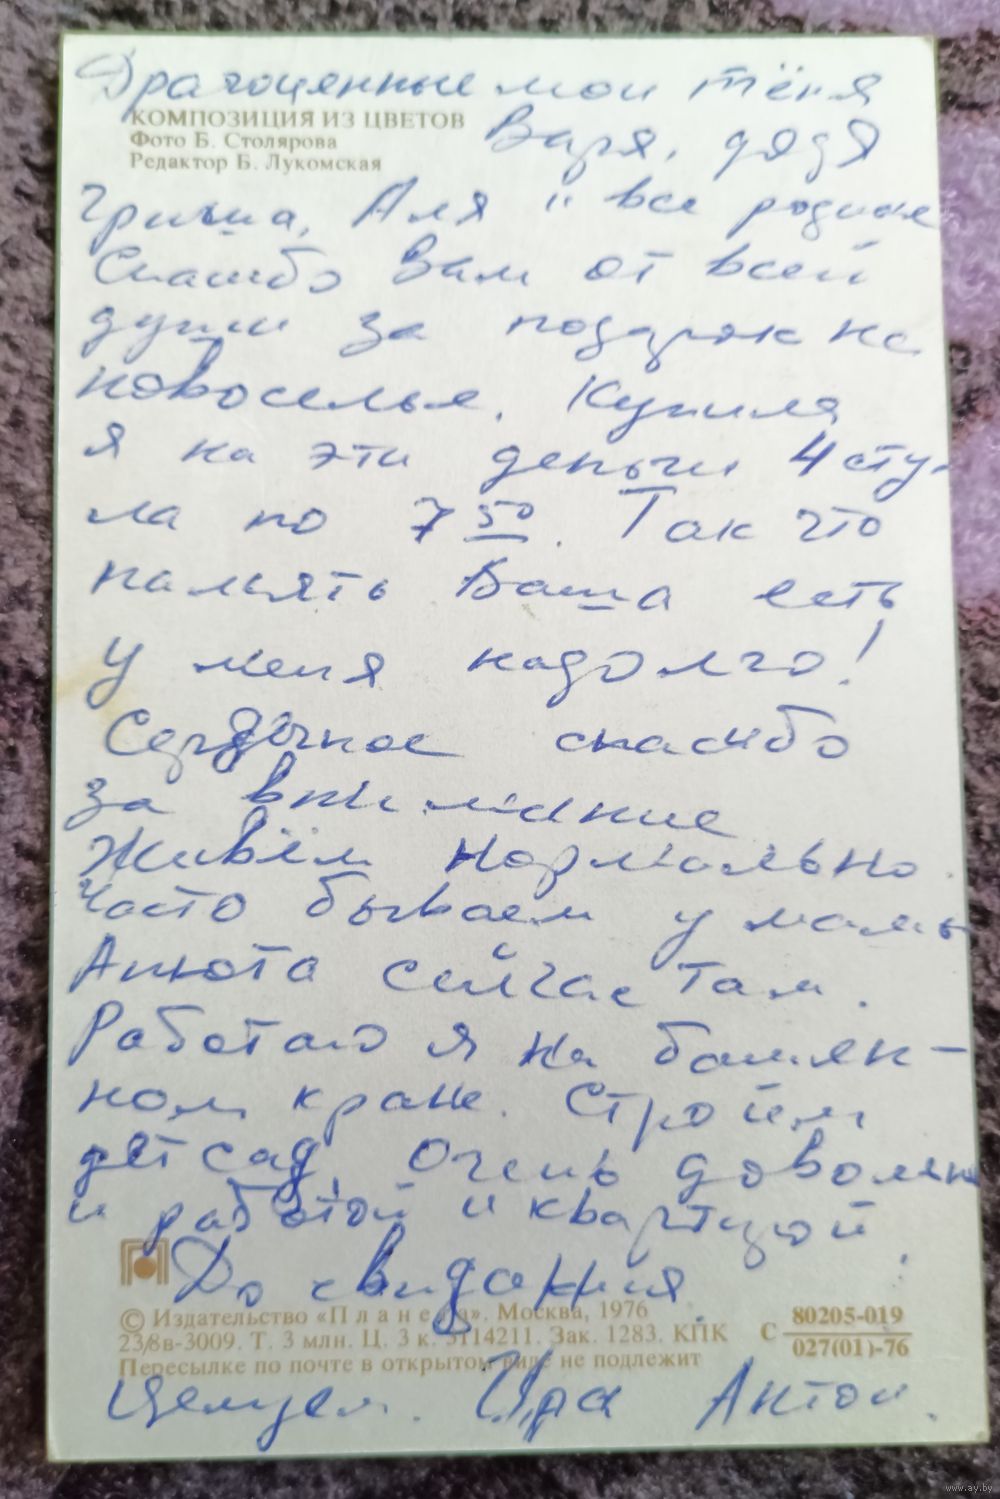 Драгоценные мои тётя
КОМПОЗИЦИЯ ИЗ ЦВЕТОВ
Фото Б. Столярова
Редактор Б. Лукомская
Варя, дядя
Гриша, Аля и все родные
Спасибо Вам от всей
души за подарок на
новоселье. Купила
я на эти деньги 4 сту-
ла по 7 50. Так что
память Ваша есть
у меня надолго!
Сердечное спасибо
за внимание
Живём нормально.
Часто бываем у мамы
Анюта сейчас там.
Работаю я на башен-
ном кране. Строим
детсад. Очень довольна
и работой и квартирой.
До свидания.
© Издательство «Планета». Москва, 1976
23/8в-3009. Т. 3 млн. Ц. 3 к. 3114211. Зак. 1283. КПК
Пересылке по почте в открытом виде не подлежит
С 80205-019
027(01)-76
Целуем. Ира Антон.
www.ay.by